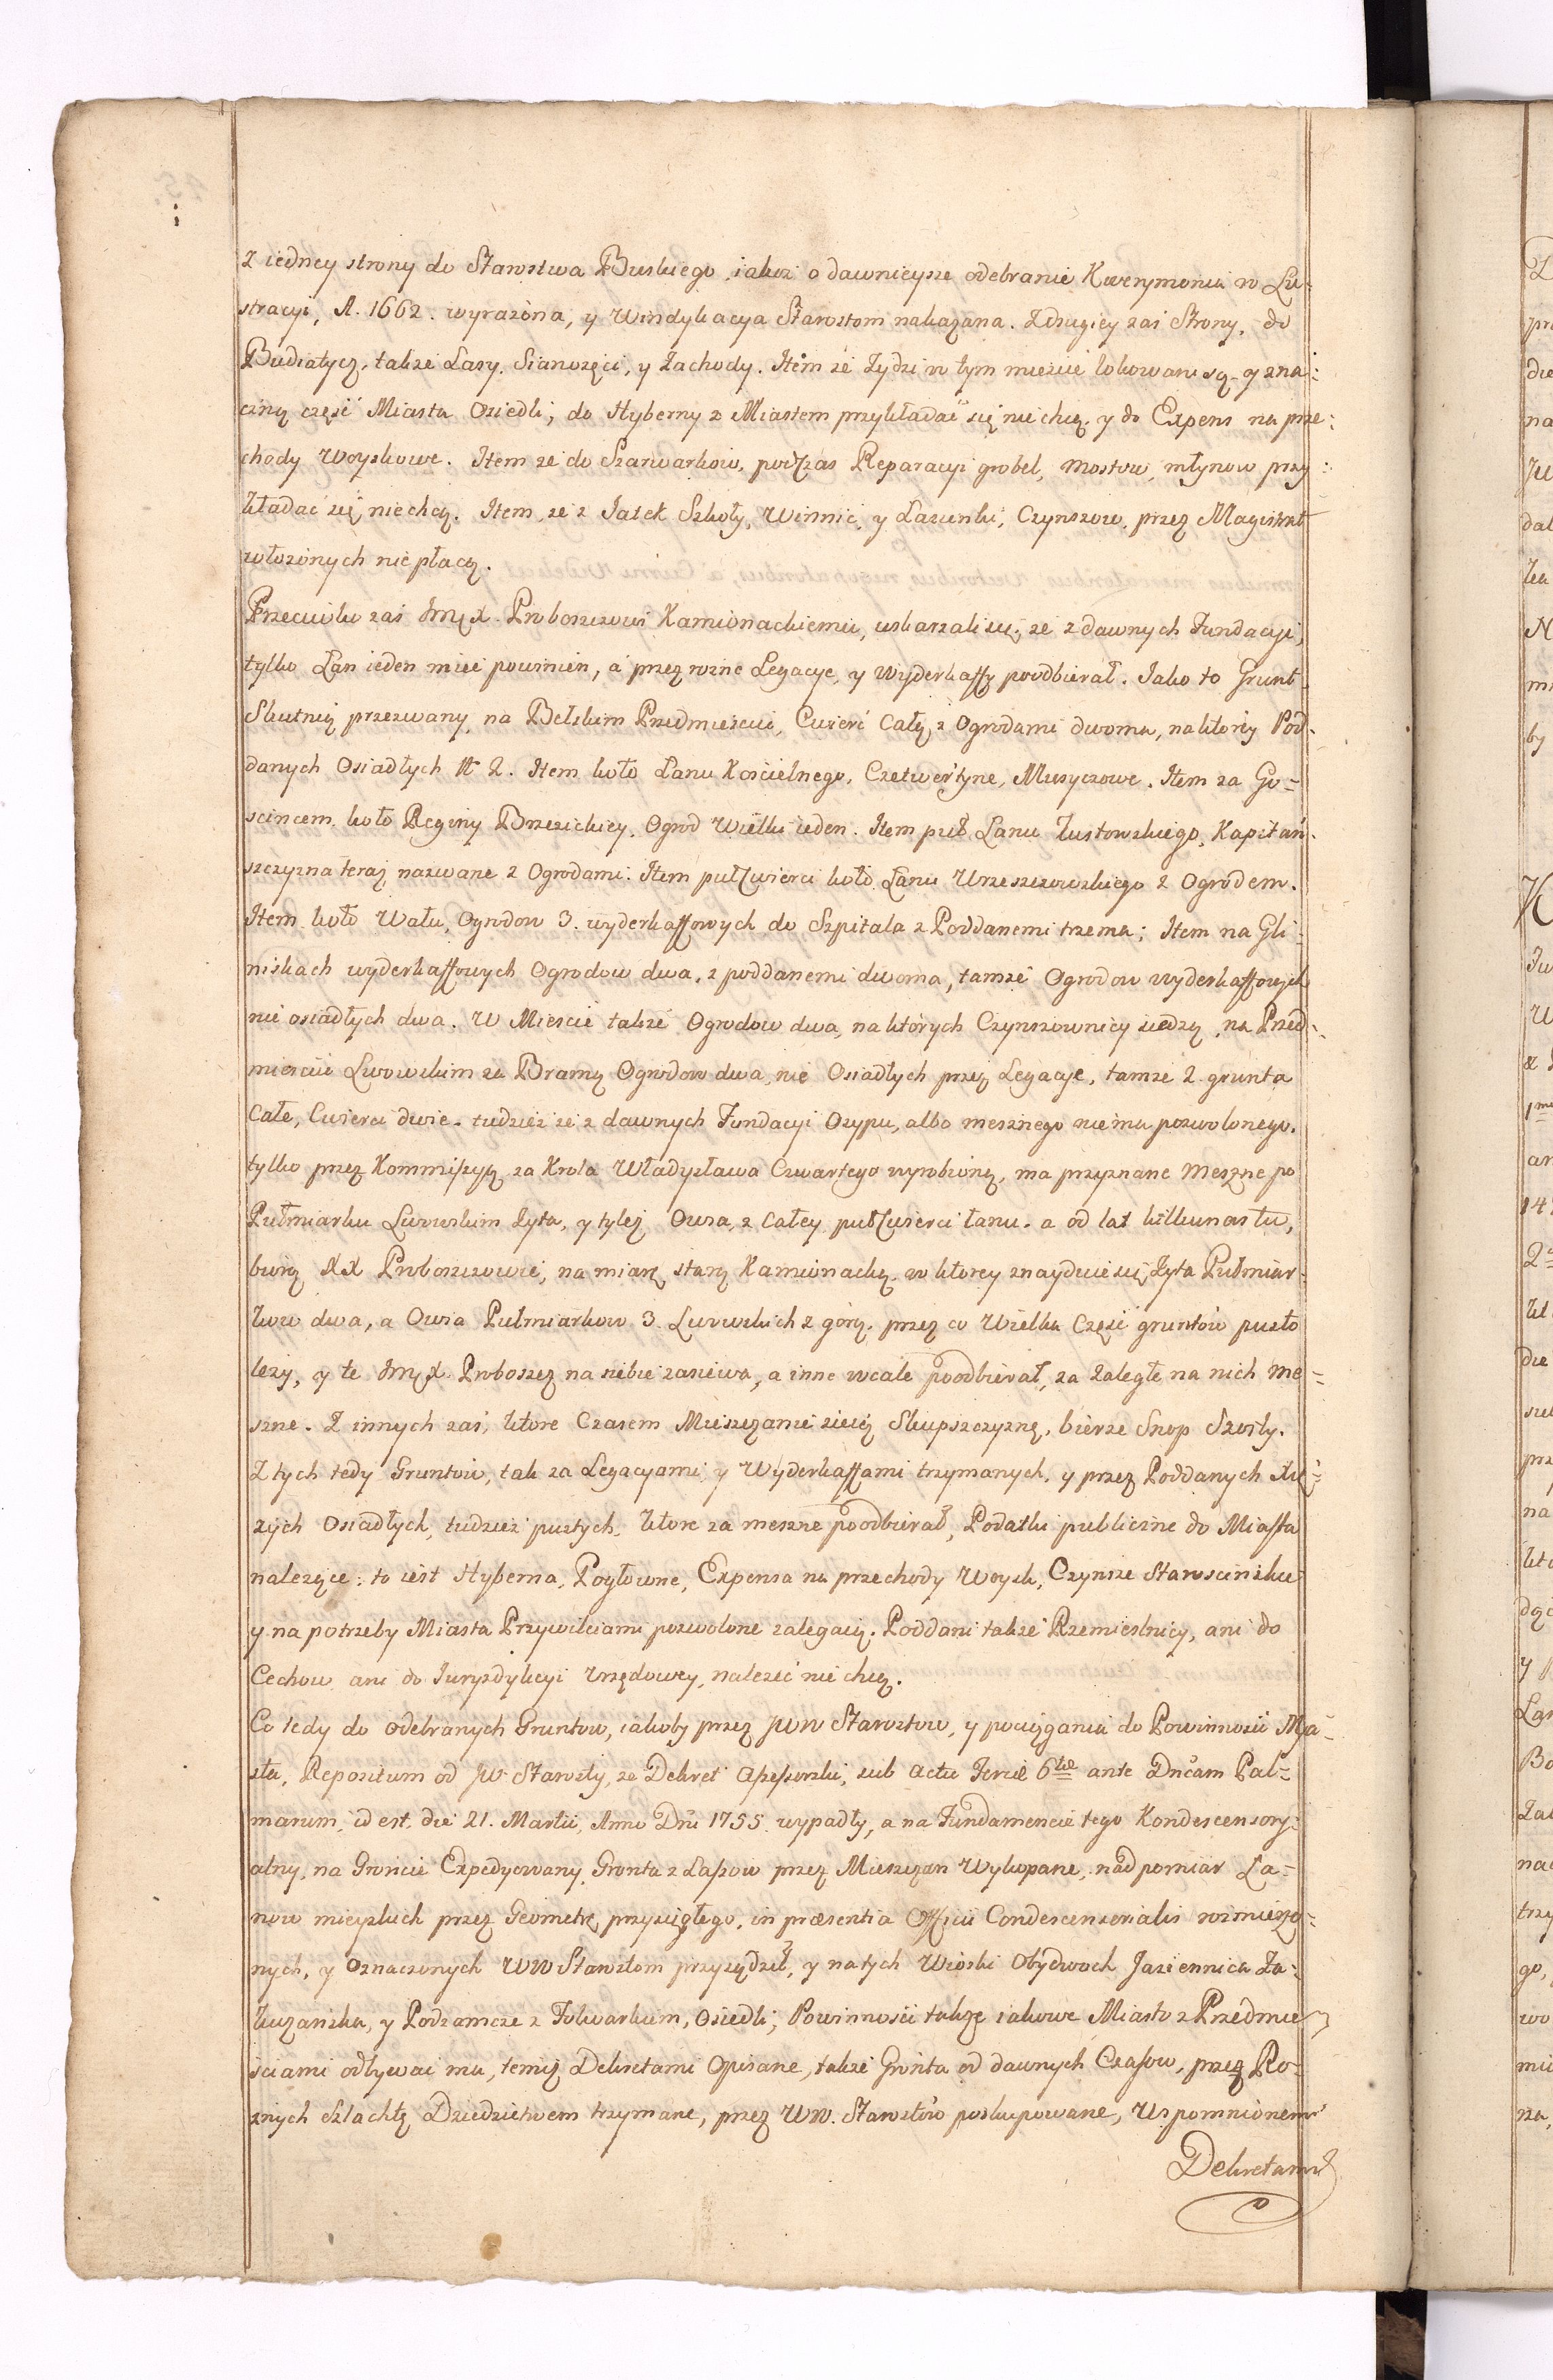 z iedney strony do Starostwa Buskiego, iakoż o dawnieysze odebranie Kwerymonia w Lu-
stracyi, A. 1662. wyrażona, y Windykacya Starostom nakazana. Z drugiey zaś Strony, do
Budiatycz, także Lasy, Sianożęci, y Zachody. Item że Żydzi w tym mieście lokowani są y zna:
czną część Miasta Osiedli; do Hyberny z Miastem przykładać się nie chcą, y do Expens na prze:
chody Woyskowe. Item że do Szarwarkow, podczas Reparacyi grobel, mostow, młynow przy:
kładać się niechcą. Item, że z Jatek Szkoły, Winnic, y Łazienki, Czynszow, przez Magistrat
włożonych nie płacą.
Przeciwko zaś Jmę X. Proboszczowi Kamionackiemu, uskarzali się, że z dawnych Fundacyi,
tylko Łan ieden mieć powinien, a przez rozne Legacye, y Wyderkaffy poodbierał. Jako to Grunt
Skutnią przezwany, na Bełskim Przedmieściu, Cwierć Całą z Ogrodami dwoma, na ktorey Pod-
danych Osiadłych N 2. Item koło Łanu Kościelnego, Czetwertyne, Musyczowe. Item za Go-
scincem, koło Reginy Brzezickiey, Ogrod Wielki ieden. Item puł Łanu Zustowskiego, Kapitań-
szczyzna teraz nazwane z Ogrodami. Item puł Cwierci koło Łanu Urzeszowskiego z Ogrodem.
Item koło Wału, Ogrodow 3. wyderkaffowych do Szpitala z Poddanemi trzema; Item na Gli-
niskach wyderkaffowych Ogrodow dwa, z poddanemi dwoma, tamże Ogrodow wyderkaffowych
nie osiadłych dwa. W Mieście także Ogrodow dwa, na ktorych Czynszownicy siedzą, na Przed-
mieściu Lwowskim za Bramą Ogrodow dwa, nie Osiadłych przez Legacye, tamże 2. grunta
Całe, Cwierci dwie. tudzież że z dawnych Fundacyi Osypu, albo mesznego nie ma pozwolonego.
tylko przez Kommissyą, za Krola Władysława Czwartego wyrobioną, ma przyznane Meszne po
Pułmiarku Lwowskim Żyta, y tyleż Owsa, z całey puł Cwierci łanu. a od lat kilkunastu,
biorą XX Proboszczowie, na miarę starą Kamionacką, w ktorey znayduie się Żyta Pułmiar-
kow dwa, a Owsa Pułmiarkow 3. Lwowskich z gorą. przez co Wielka Część gruntow pusto
leży, y te Jmę X. Proboszcz na siebie zasiewa, a inne wcale poodbierał, za Zaległe na nich me-
szne. Z innych zaś, ktore Czasem Mieszczanie sieią Skupszczyznę, bierze Snop Szosty.
Z tych tedy Gruntow, tak za Legacyami y Wyderkaffami trzymanych, y przez Poddanych Xię-
żych Osiadłych, tudzież pustych, ktore za meszne poodbierał, Podatki publiczne do Miasta
nalezące: to iest Hyberna, Pogłowne, Expensa na przechody Woysk, Czynsze Staroscinskie
y na potrzeby Miasta Przywileiami pozwolone zalegaią. Poddani także Rzemieslnicy, ani do
Cechow ani do Jurysdykcyi Urzędowey, należeć nie chcą.
Co tedy do Odebranych Gruntow, iakoby przez JWW Starostow, y pociągania do Powinności Mia-
sta, Repositum od JW Starosty, że Dekret Assessorski, sub Actu Feriæ 6tæ ante Dnicam Pal-
marum, id est, die 21. Martii, Anno Dni 1755 wypadły, a na Fundamencie tego Kondescensory-
alny, na Gruncie Expedyowany Gronta z Lassow przez Mieszczan Wykopane, nad pomiar Ła-
now mieyskich przez Geometrę przysięgłego, in præsentia Officii Condescensorialis rozmierzo-
nych, y Oznaczonych WW Starostom przysądził, y na tych Wioski Obydwoch Jasiennica Za-
kuzańska, y Podzamcze z Folwarkiem, Osiedli; Powinności także iakowe Miasto z Przedmie
ściami odbywać ma, temisz Dekretami Opisane, także Gronta od dawnych Czasow, przez Ro-
żnych Szlachtę Dziedzictwem trzymane, przez WW. Starostow poskupowane, Wspomnionemi
Dekretami